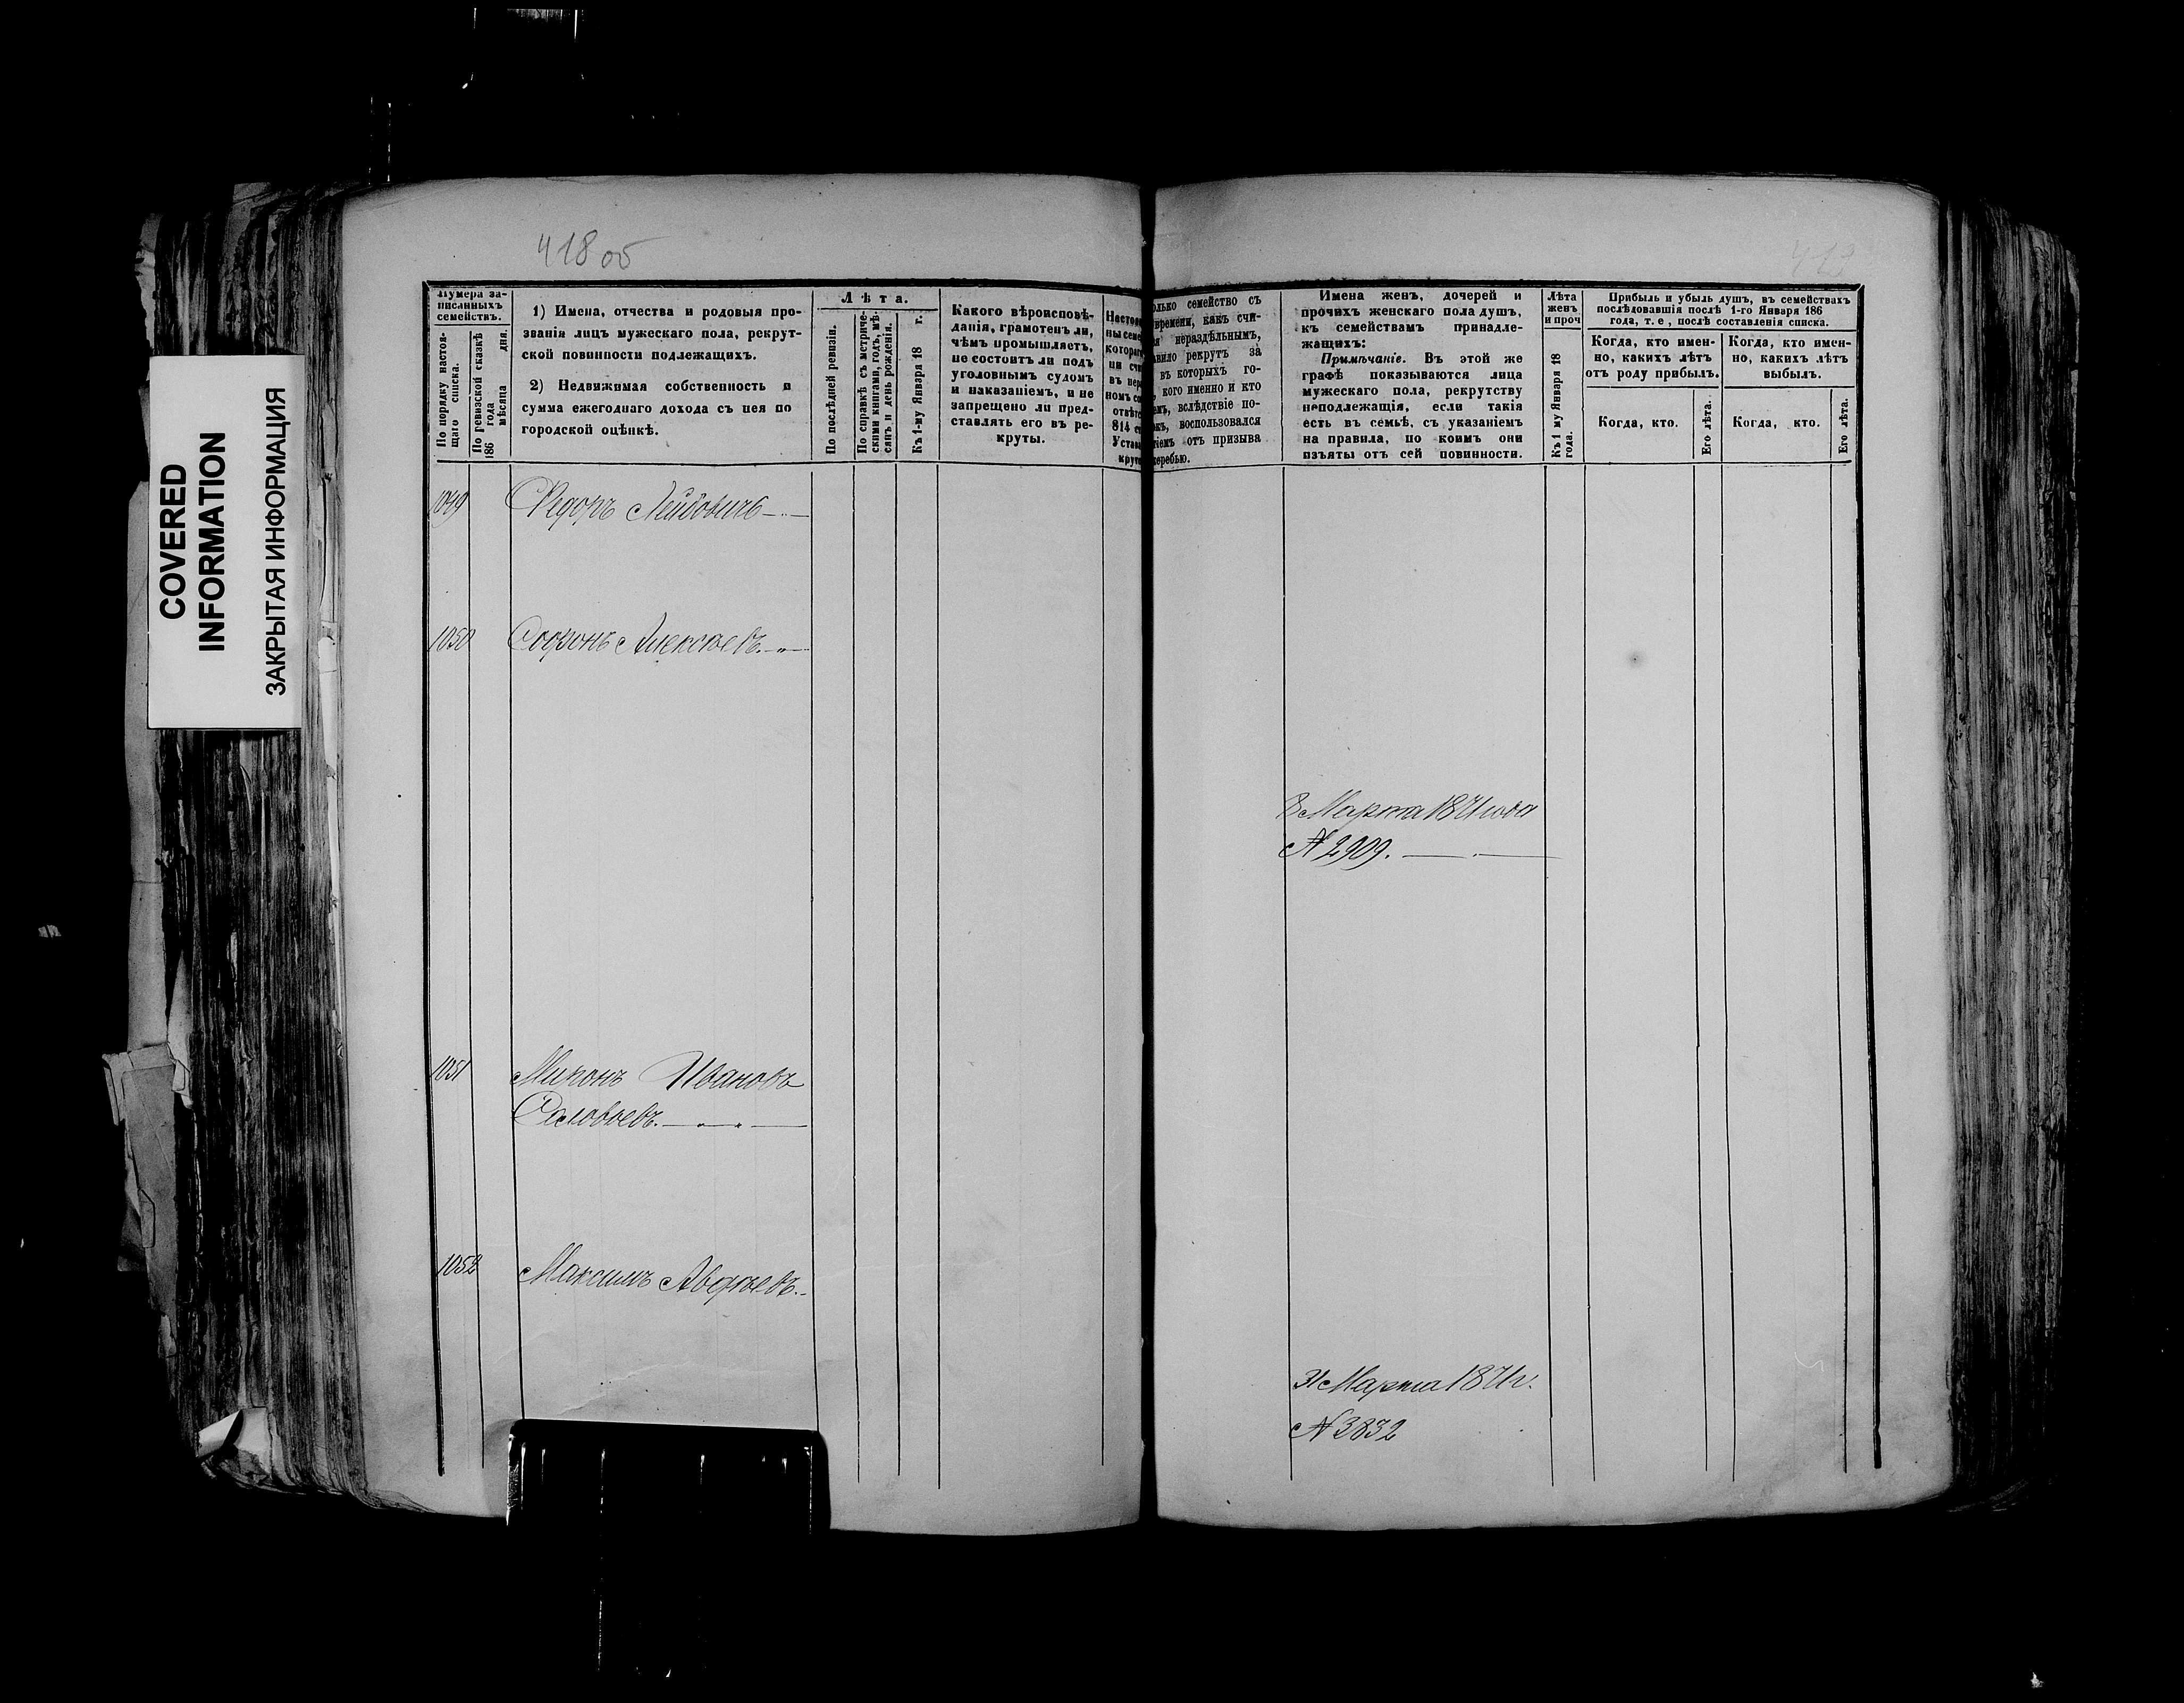 COVERED
INFORMATION
ЗАКРЫТАЯ ИНФОРМАЦИЯ
418 об
Нумера за-
писанныхъ
семействъ.
По порядку настоя-
щаго списка.
По ревизской сказкѣ
186 года
мѣсяца дня.
1) Имена, отчества и родовыя про-
званія лицъ мужескаго пола, рекрут-
ской повинности подлежащихъ.
2) Недвижимая собственность и
сумма ежегоднаго дохода съ нея по
городской оцѣнкѣ.
Лѣта.
По послѣдней ревизіи.
По справкѣ съ метриче-
скими книгами, годъ, мѣ-
сяцъ и день рожденія.
Къ 1-му Января 18 г.
Какого вѣроисповѣ-
данія, грамотенъ ли,
чѣмъ промышляетъ,
не состоитъ ли подъ
уголовнымъ судомъ
и наказаніемъ, и не
запрещено ли пред-
ставлять его въ ре-
круты.
семейство съ
времени, какъ счи-
нераздѣльнымъ,
рекрутъ за
въ которыхъ го-
кого именно и кто
вслѣдствіе по-
воспользовался
отъ призыва
Имена женъ, дочерей и
прочихъ женскаго пола душъ,
къ семействамъ принадле-
жащихъ:
Примѣчаніе. Въ этой же
графѣ показываются лица
мужескаго пола, рекрутству
неподлежащія, если такія
есть въ семьѣ, съ указаніемъ
на правила, по коимъ они
изъяты отъ сей повинности.
Лѣта
женъ
и проч
Къ 1 му Января 18
года.
Прибыль и убыль душъ, въ семействахъ
послѣдовавшія послѣ 1-го Января 186
года, т. е, послѣ составленія списка.
Когда, кто имен-
но, какихъ лѣтъ
отъ роду прибылъ.
Когда, кто имен-
но, какихъ лѣтъ
выбылъ.
Когда, кто.
Его лѣта.
Когда, кто.
Его лѣта.
1049 Федоръ Лейбовичъ
1050 Софонъ Алексѣевъ.
8 Марта 1871 года
№ 2909.
1051 Миронъ Ивановъ
Соловьевъ.
1052 Максимъ Авдѣевъ.
31 Марта 1871 г.
№ 3832